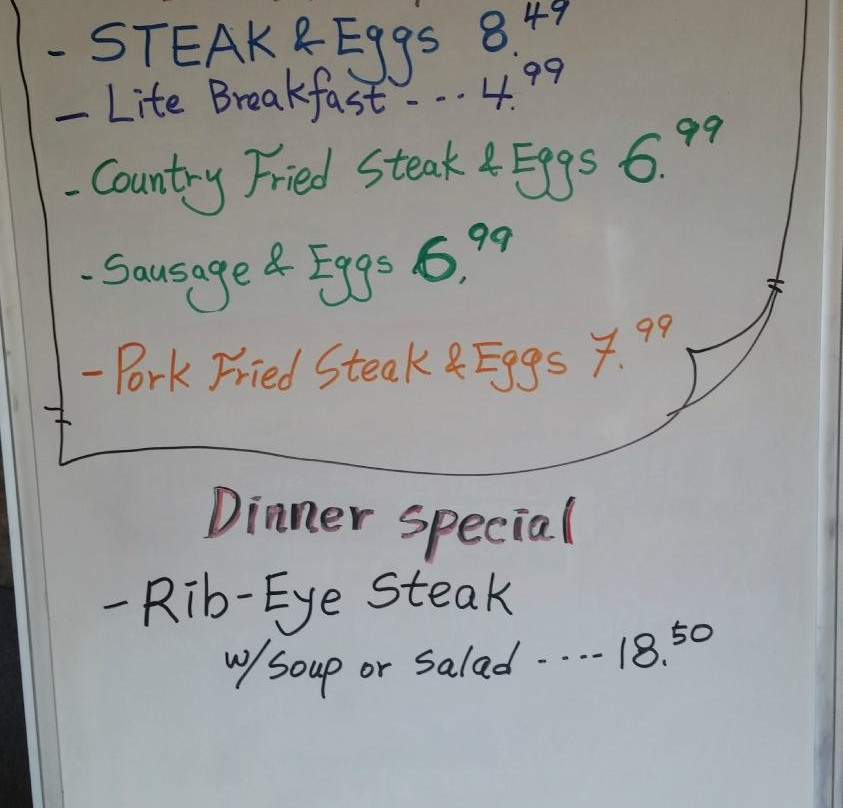 - STEAK & Eggs 8.49
- Lite Breakfast - - - - 4.99
- Country Fried Steak & Eggs 6.99
- Sausage & Eggs 6.99
- Pork Fried Steak & Eggs 7.99
Dinner special
- Rib-Eye Steak
w/ Soup or Salad - - - - 18.50